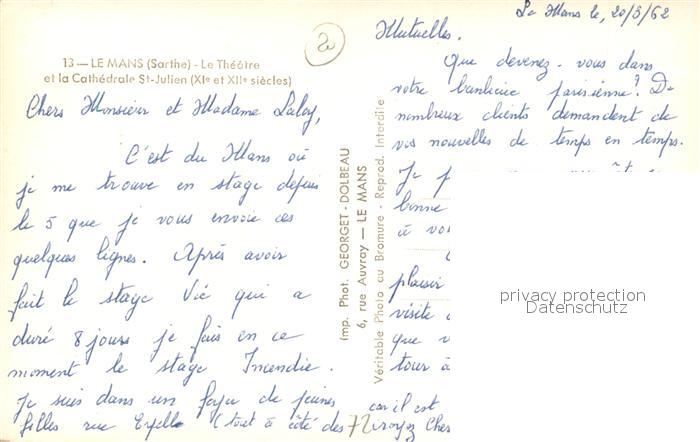 13 — LE MANS (Sarthe) - Le Théâtre
et la Cathédrale St-Julien (XIe et XIIe siècles)
Le Mans le, 20/3/62
Chers Monsieur et Madame
C'est du Mans où
je me trouve en stage depuis
le 5 que je vous envoie ces
quelques lignes. Après avoir
fait le stage Vie qui a
duré 8 jours je fais en ce
moment le stage Incendie.
Je suis dans un foyer de jeunes
filles rue (tout à côté des
Imp. Phot. GEORGET - DOLBEAU
6, rue Auvray — LE MANS
Véritable Photo au Bromure - Reprod. Interdite
Mutuelles.
Que devenez-vous dans
votre banlieue parisienne? De
nombreux clients demandent de
vos nouvelles de temps en temps.
Je
bonne
à
plaisir
visite
que
tour à
car il est
Cher
72
privacy protection
Datenschutz